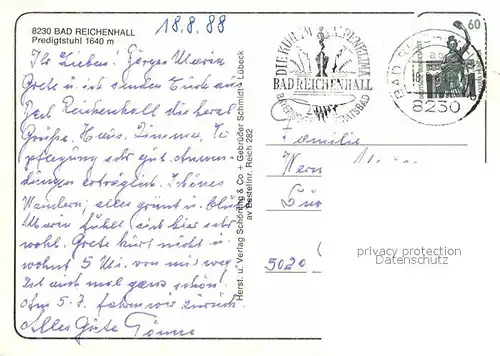 8230 BAD REICHENHALL
Predigtstuhl 1640 m
18.8.88
Ihr Lieben! Maria
Grete u. ich senden Euch aus
Bad Reichenhall die herzl.
Grüße. Haus, Zimmer, Ver
pflegung sehr gut
erträglich. Schönes
Wandern, alles grünt u. blüht
Maria fühlt sich hier sehr
wohl. Grete kurt nicht u.
wohnt 5 Min. von mir weg.
Ist auch mal ganz schön.
Am 5.7. fahren wir zurück.
Alles Gute
Herst. u. Verlag Schöning & Co + Gebrüder Schmidt · Lübeck
av Bestellnr. Reich 282
DIE KUR IM ALPENKLIMA
BAD REICHENHALL
BAYERISCHES STAATSBAD
BAD
8230
60
Familie
Wern
5020
privacy protection
Datenschutz